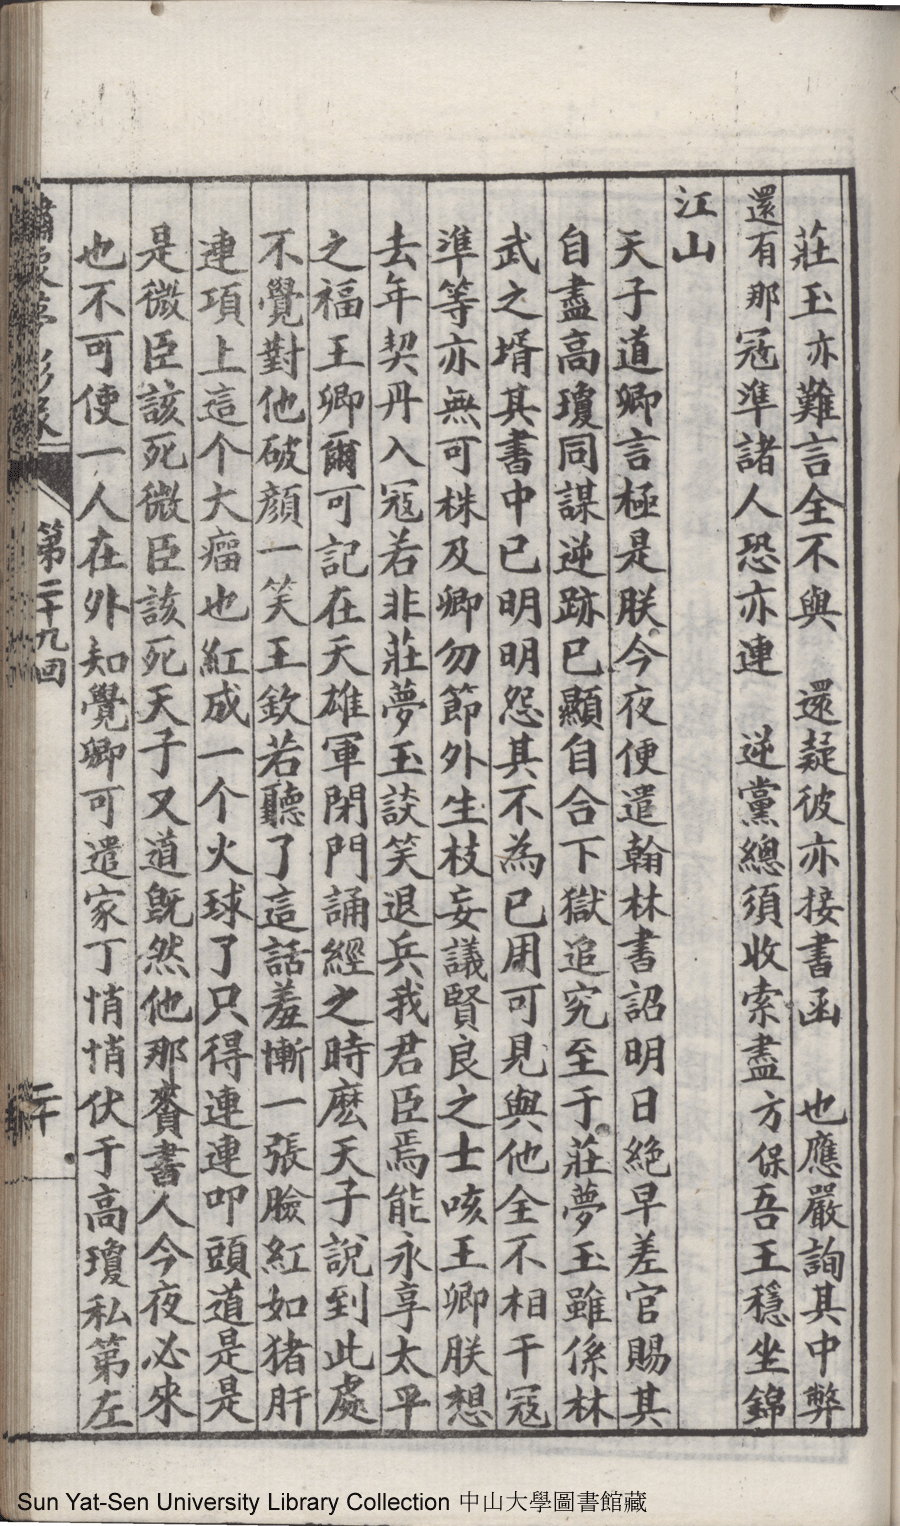 莊玉亦難言全不與　還疑彼亦接書函　也應嚴詢其中弊
還有那冦準諸人恐亦連　逆黨總須收索盡　方保吾王穩坐錦
江山
天子道卿言極是朕今夜便遣翰林書詔明日絶早差官賜其
自盡高瓊同謀逆跡已顯自合下獄追究至于莊夢玉雖係林
武之壻其書中已明明怨其不為已用可見與他全不相干冦
準等亦無可株及卿勿節外生枝妄議賢良之士咳王卿朕想
去年契丹入冦若非莊夢玉談笑退兵我君臣焉能永享太平
之福王卿爾可記在天雄軍閉門誦經之時麽天子說到此處
不覺對他破顔一笑王欽若聽了這話羞慚一張臉紅如猪肝
連項上這个大瘤也紅成一个火球了只得連連叩頭道是是
是微臣該死微臣該死天子又道旣然他那賫書人今夜必來
也不可使一人在外知覺卿可遣家丁悄悄伏于高瓊私第左
第二十九回
二十
Sun Yat-Sen University Library Collection 中山大學圖書館藏